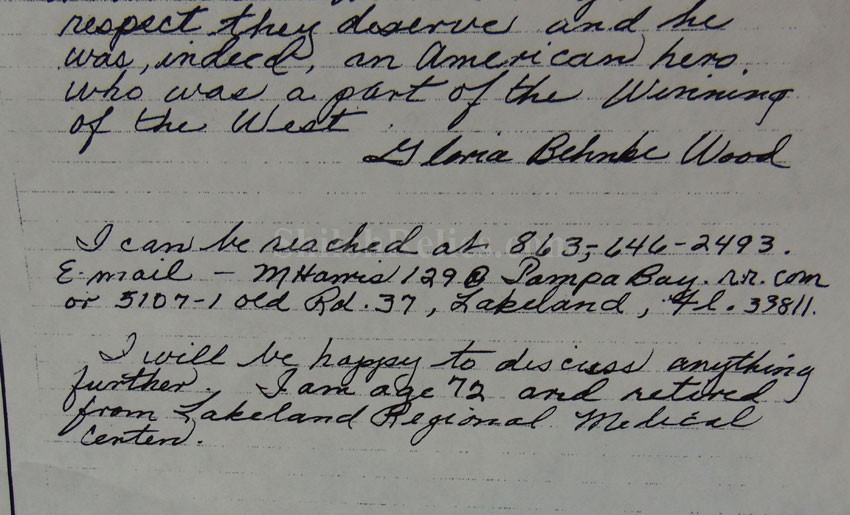 respect they deserve and he
was, indeed, an American hero
who was a part of the Winning
of the West.
Gloria Behnke Wood
ShilohRelics.com
I can be reached at 863-646-2493.
E-mail - MHarris129@TampaBay.rr.com
or 5107-1 old Rd. 37, Lakeland, Fl. 33811.
I will be happy to discuss anything
further. I am age 72 and retired
from Lakeland Regional Medical
Center.